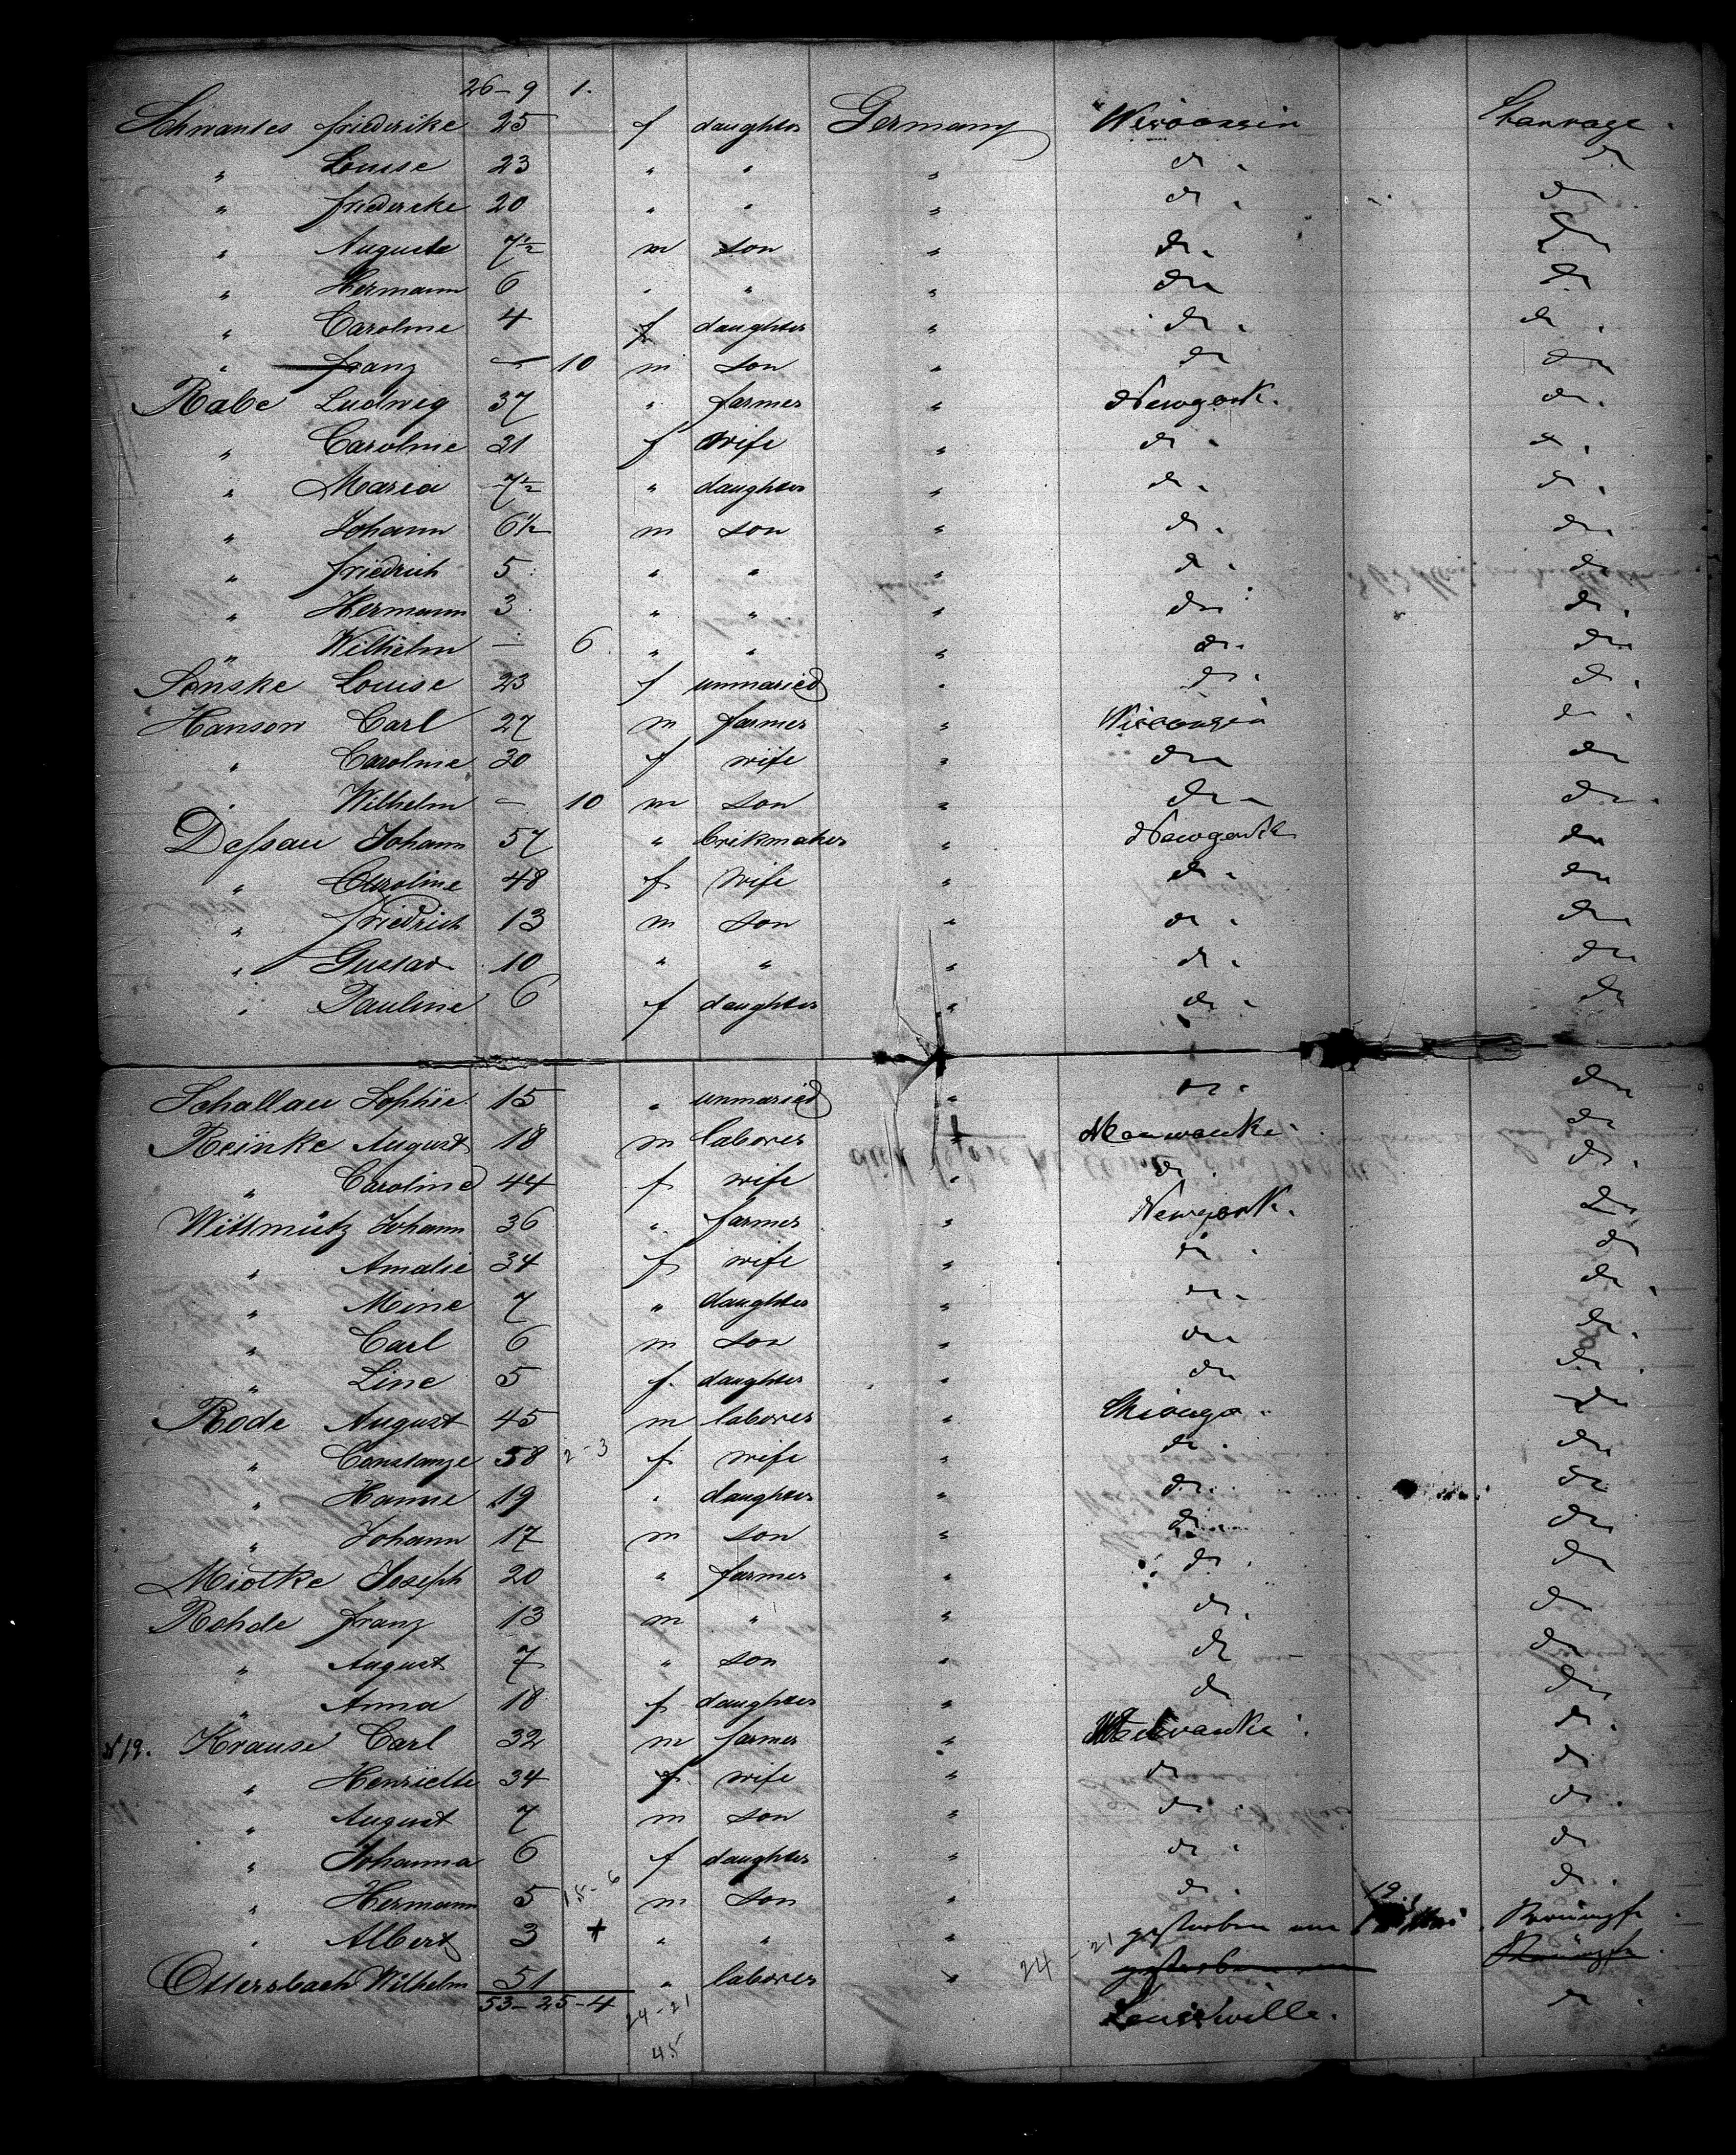 26-9 1.
Schwantes friederike 25 f daughter Germany Wisconsin
" Louise 23 " " " do.
" friedercke 20 " " " do. do
" Auguste 7½ m son " do. do
" Hermann 6 " " " do do
" Caroline 4 f daughter " do. do.
" franz — 10 m son " do do
Rabe Ludwig 37 " farmer " Newyork. do.
" Caroline 31 f wife " do. do.
" Maria 7½ " daughter " do. do.
" Johann 6½ m son " do. do.
" friedrich 5 " " " do. do
" Hermann 3 " " " do do.
" Wilhelm — 6 " " " do. do
Louise 23 f unmaried " do. do.
Hanson Carl 27 m farmer " Wisconsin do.
" Caroline 30 f wife " do do
" Wilhelm — 10 m son " do do.
Deßau Johann 57 " brikmaker " Newyork do
" Caroline 48 f wife " do. do
" friedrich 13 m son " do. do
" Gustav 10 " " " do. do
" Pauline 6 f daughter " do. do
Schallau Sophie 15 " unmaried " do. do
Reinke August 18 m laborer " do
" Caroline 44 f wife " do do.
Wittmütz Johann 36 " farmer " Newyork. do
" Amalie 34 f wife " do. do
" Mine 7 " daughter " do. do.
" Carl 6 m son " do do.
" Line 5 f. daughter " do do.
Rode August 45 m laborer " Chicago. do
" Constanze 58 2-3 f wife " do. do
" Hanne 19 " daughter " do. do
" Johann 17 m son " do do
Miotke Joseph 20 " farmer " do. do
Rohde franz 13 m " " do. do
" August 7 " son " do do
" Anna 18 f daughter " do do
N 19. Krause Carl 32 m farmer " do.
" Henriette 34 f wife " do do
" August 7 m son " do. do.
" Johanna 6 f daughter " do. do
" Hermann 5 15-6 m son " do. do.
" Albert 3 + " " " gestorben am 19 Mai. Krämpfe.
24-21 gestorben am Krämpfe.
Ottersbach Wilhelm 51 " laborer " Louisville. do.
53-25-4
24-21
45